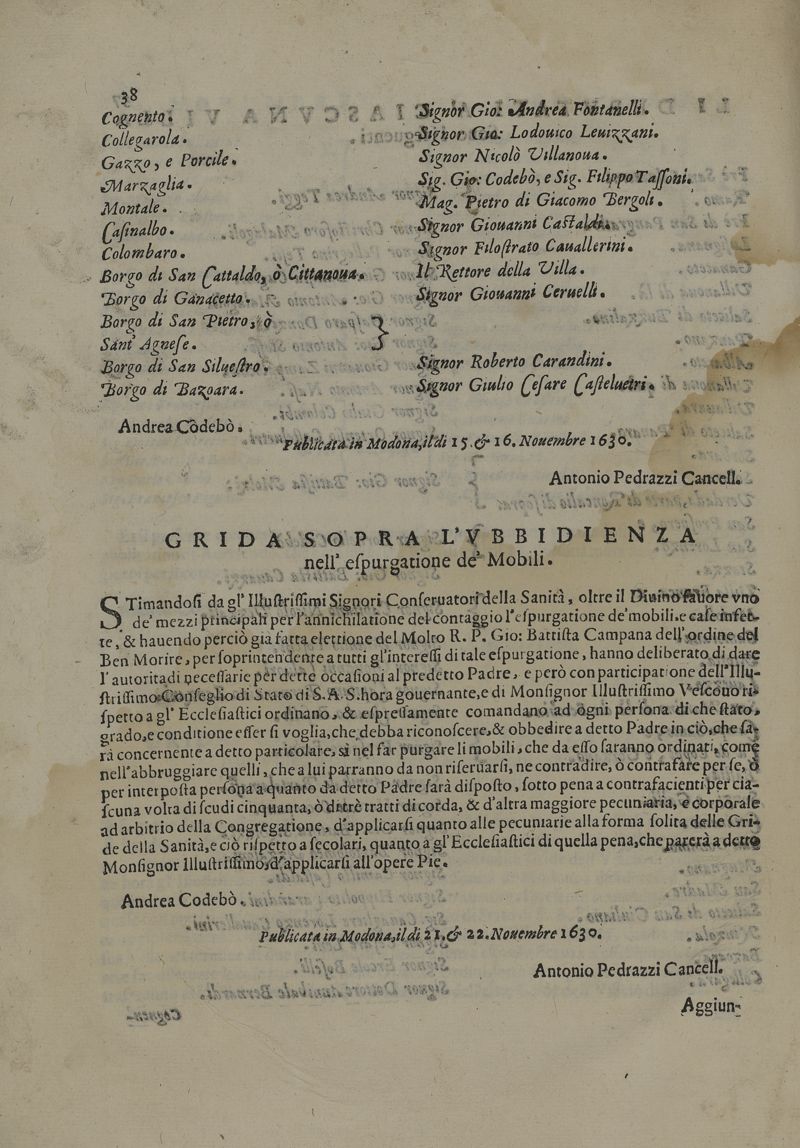 38
Cogneto. Signor Gio: Andrea Fontanelli.
Collegarola. Signor Gio: Lodouico Leuizzani.
Gazzo, e Porcile. Signor Nicolò Villanoua.
Marzaglia. Sig. Gio: Codebò, e Sig. Filippo Taſſoni.
Montale. Mag. Pietro di Giacomo Bergoli.
Caſinalbo. Signor Giouanni Caſtaldi.
Colombaro. Signor Filoſtrato Cauallerini.
Borgo di San Cattaldo, ò Cittanoua. Il Rettore della Villa.
Borgo di Ganaceto. Signor Giouanni Ceruelli.
Borgo di San Pietro, ò
Sant' Agneſe.
Borgo di San Silueſtro. Signor Roberto Carandini.
Borgo di Bazoara. Signor Giulio Ceſare Caſteluetri.
Andrea Codebò.
Publicata in Modona, il di 15. & 16. Nouembre 1630.
Antonio Pedrazzi Cancell.
GRIDA SOPRA L'VBBIDIENZA
nell' eſpurgatione de' Mobili.
STimandoſi da gl' Illuſtriſſimi Signori Conſeruatori della Sanità, oltre il Diuino fauore vno
de' mezzi principali per l'annichilatione del contaggio l'eſpurgatione de' mobili, e caſe infet-
te, & hauendo perciò gia fatta elettione del Molto R. P. Gio: Battiſta Campana dell' ordine del
Ben Morire, per ſoprintendente a tutti gl'intereſſi di tale eſpurgatione, hanno deliberato di dare
l' autorità di neceſſarie per dette occaſioni al predetto Padre, e però con participatione dell' Illu-
ſtriſſimo Conſeglio di Stato di S. A. S. hora gouernante, e di Monſignor Illuſtriſſimo Veſcouo ri-
ſpetto a gl' Eccleſiaſtici ordinano, & eſpreſſamente comandano ad ogni perſona di che ſtato,
grado, e conditione eſſer ſi voglia, che debba riconoſcere, & obbedire a detto Padre in ciò, che ſa-
rà concernente a detto particolare, sì nel far purgare li mobili, che da eſſo ſaranno ordinati, come
nell' abbruggiare quelli, che a lui parranno da non riſeruarſi, ne contradire, ò contrafare per ſe, ò
per interpoſta perſona a quanto da detto Padre ſarà diſpoſto, ſotto pena a contrafacienti per cia-
ſcuna volta di ſcudi cinquanta, ò di trè tratti di corda, & d'altra maggiore pecuniaria, e corporale
ad arbitrio della Congregatione, d'applicarſi quanto alle pecuniarie alla forma ſolita delle Gri-
de della Sanità, e ciò riſpetto a ſecolari, quanto a gl' Eccleſiaſtici di quella pena, che parerà a detto
Monſignor Illuſtriſſimo, d'applicarſi all' opere Pie.
Andrea Codebò.
Publicata in Modona, il di 21. & 22. Nouembre 1630.
Antonio Pedrazzi Cancell.
Aggiun-